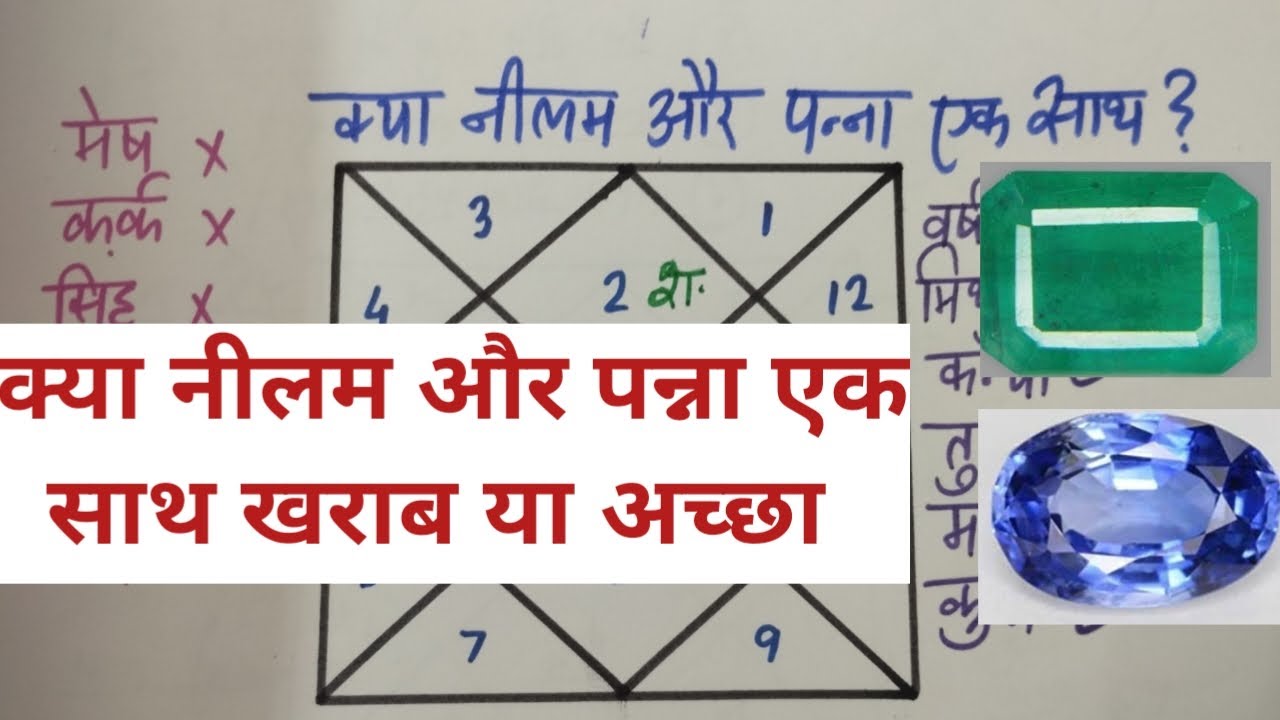 क्या नीलम और पन्ना एक साथ ?
मेष x
कर्क x
सिंह x
3
1
4
2 श.
12
क्या नीलम और पन्ना एक
साथ खराब या अच्छा
7
9